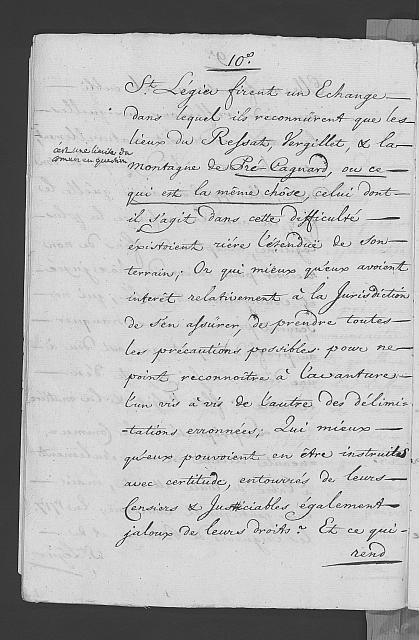 10.°
St. Légier firent un Echange
dans lequel ils reconnûrent que les
lieux du Ressat, Vergillet, & la
montagne de Pré-Cagnard, ou ce
qui est la même chose, celui dont
il s'agit dans cette difficulté
existoient riére l'étendue de son
terrain; Or qui mieux qu'eux avoient
interêt relativement à la Jurisdiction
de s'en assûrer, de prendre toutes
les précautions possibles pour ne
point reconnoître à l'avanture
l'un vis à vis de l'autre des délimi-
-tations erronnées; Qui mieux
qu'eux pouvoient en être instruits
avec certitude, entourrés de leurs
Censiers & Justiciables également
jaloux de leurs droits? Et ce qui
rend
est une limite du
en question